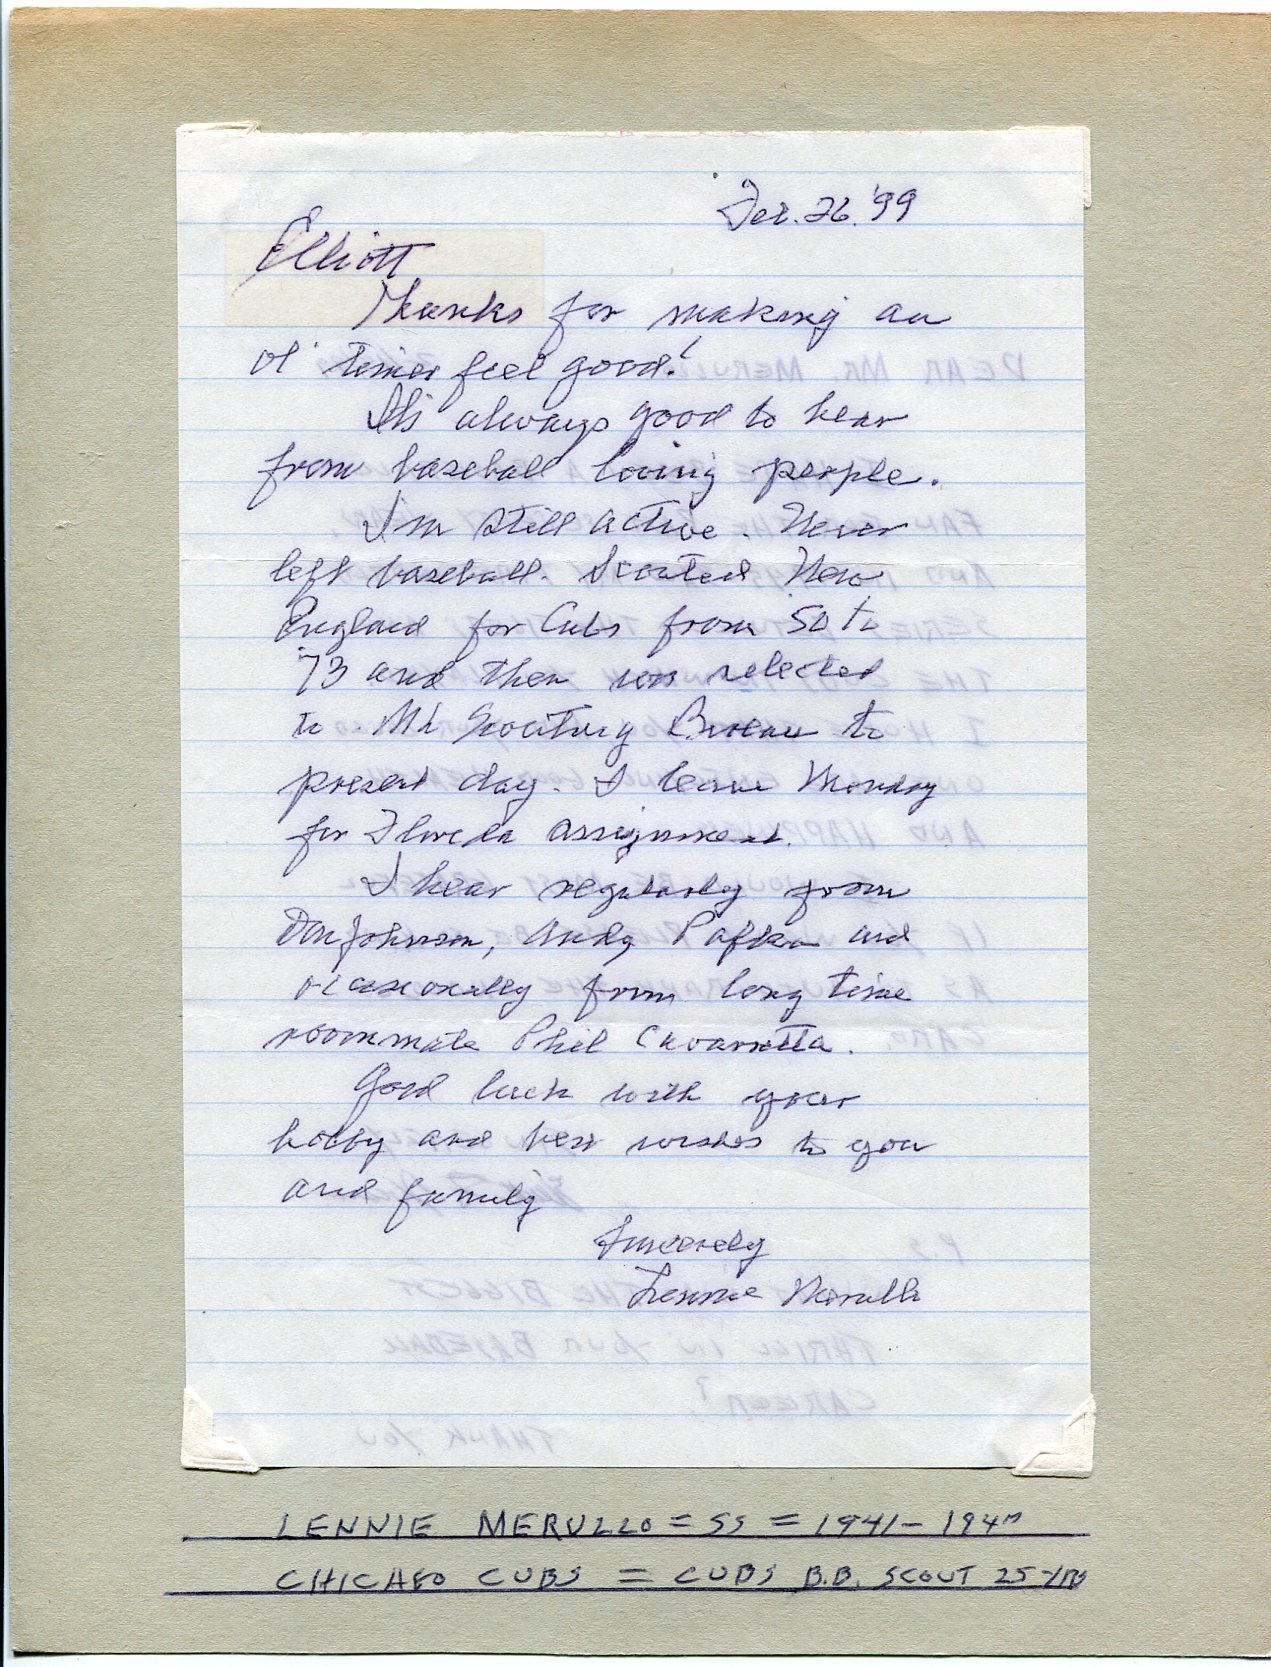 Feb. 26. '99
Elliott
Thanks for making an
ol' timer feel good!
It's always good to hear
from baseball loving people.
I'm still active. Never
left baseball. Scouted New
England for Cubs from 50 to
'73 and then was selected
to ML Scouting Bureau to
present day. I leave Monday
for Florida assignment.
I hear regularly from
Don Johnson, Andy Pafko and
occasionally from long time
roommate Phil Cavarretta.
Good luck with your
hobby and best wishes to you
and family
Sincerely
Lennie Merullo
LENNIE MERULLO = SS = 1941-1947
CHICAGO CUBS = CUBS B.B. SCOUT 25-YRS